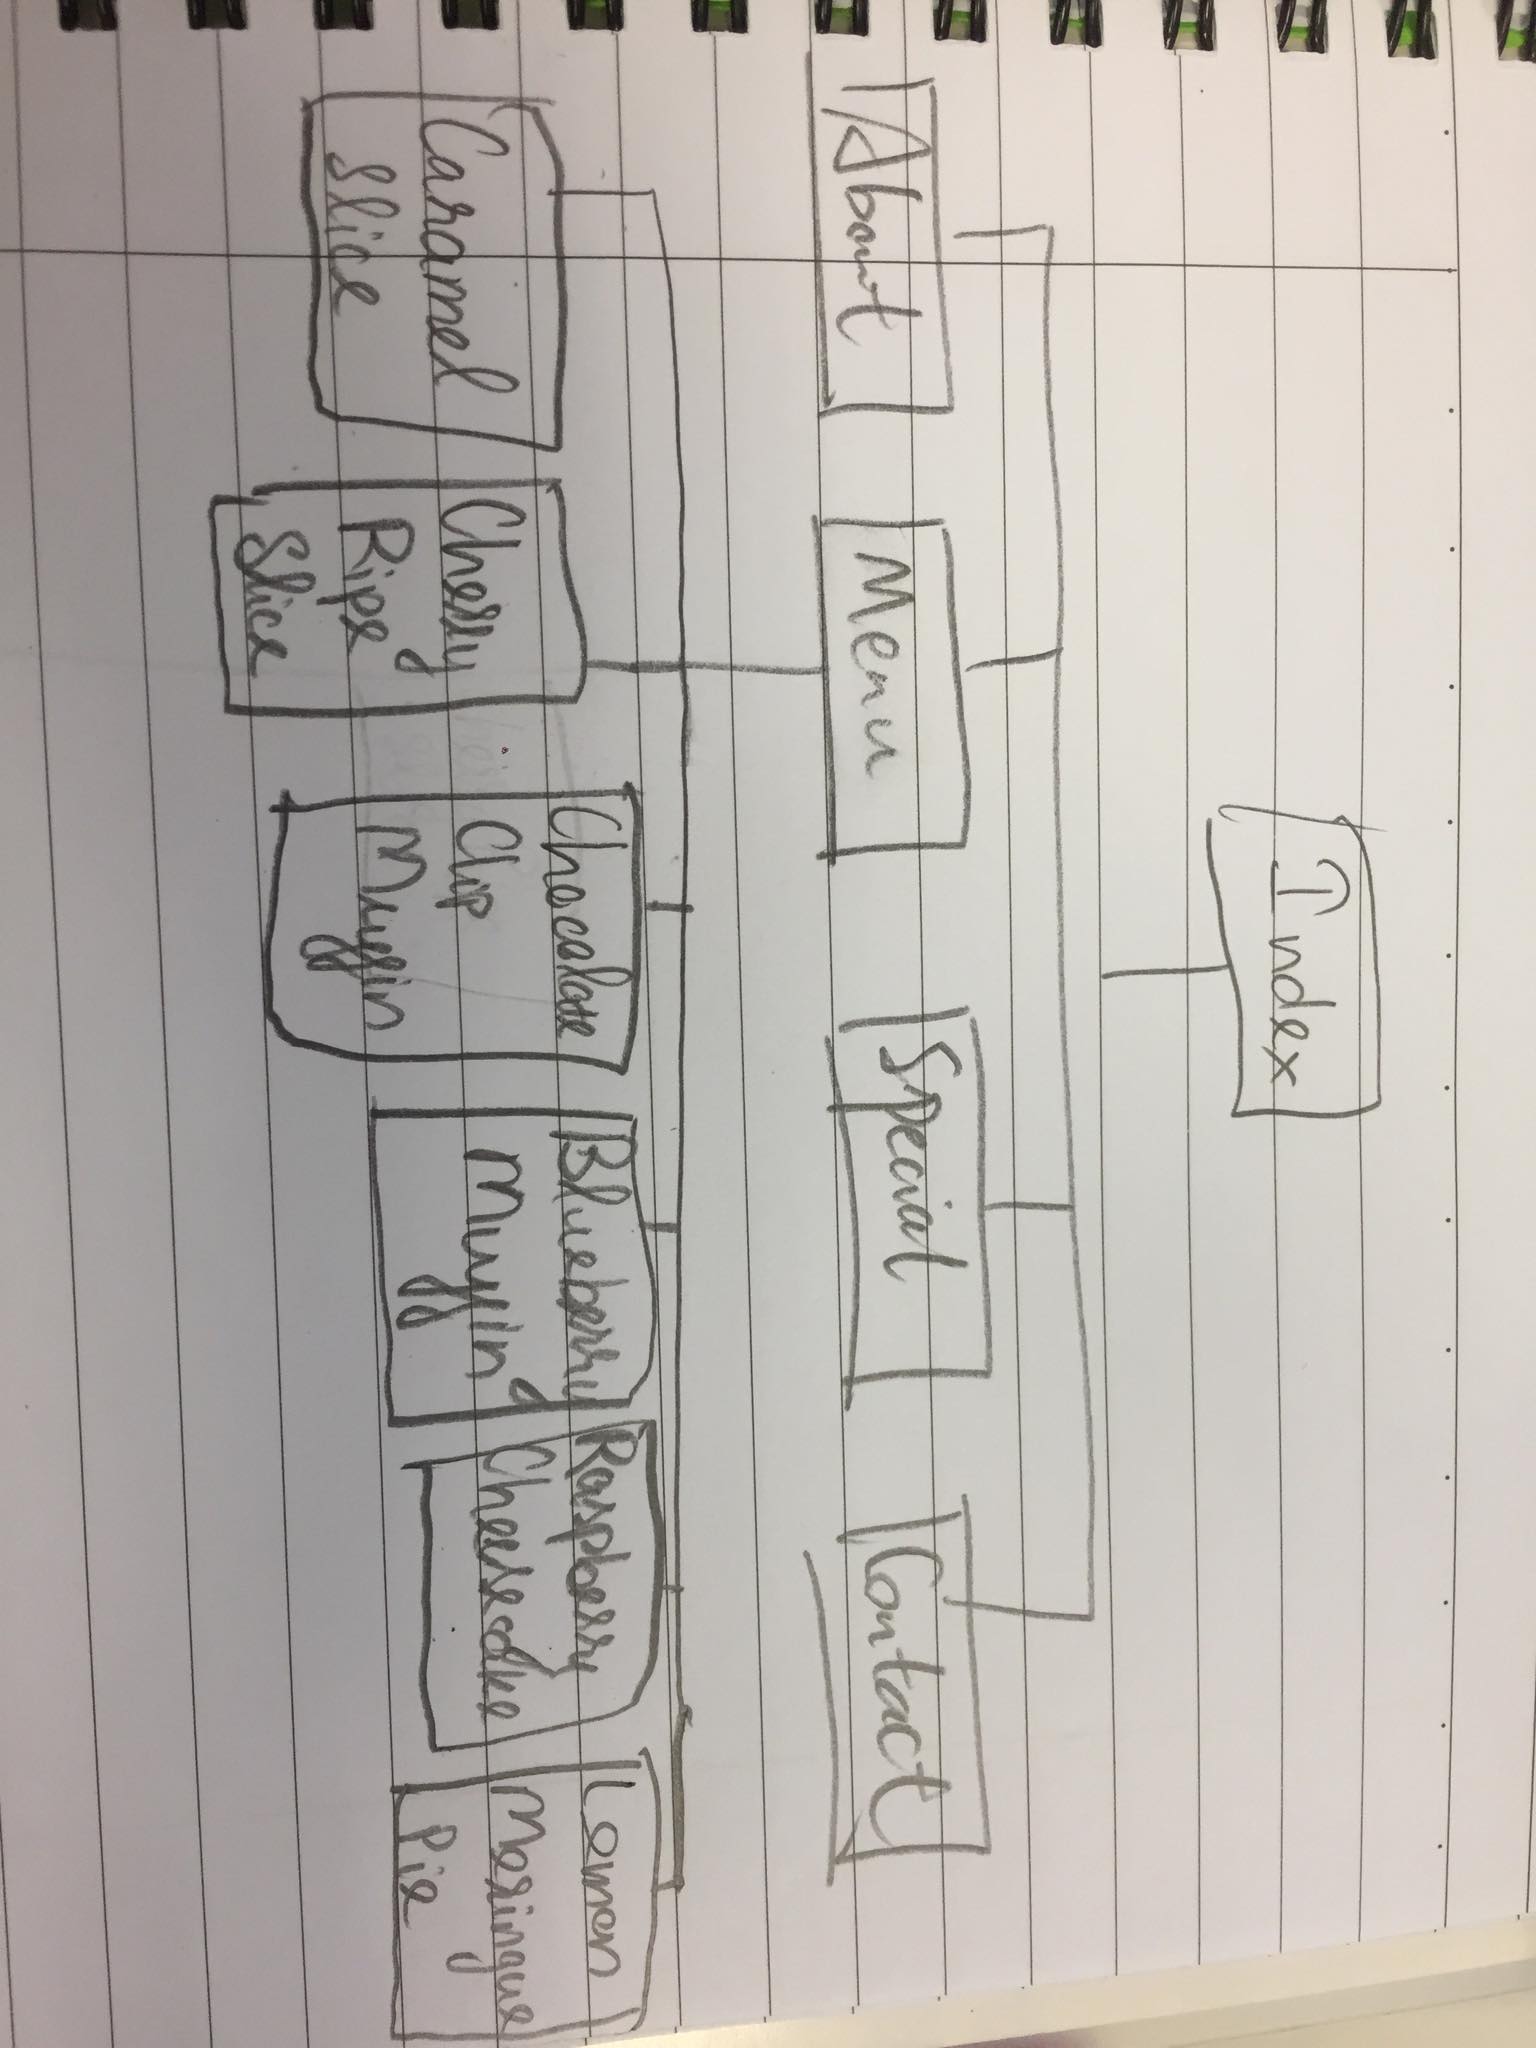 Index
About
Menu
Special
Contact
Caramel
Slice
Cherry
Ripe
Slice
Chocolate
Chip
Muffin
Blueberry
Muffin
Raspberry
Cheesecake
Lemon
Meringue
Pie